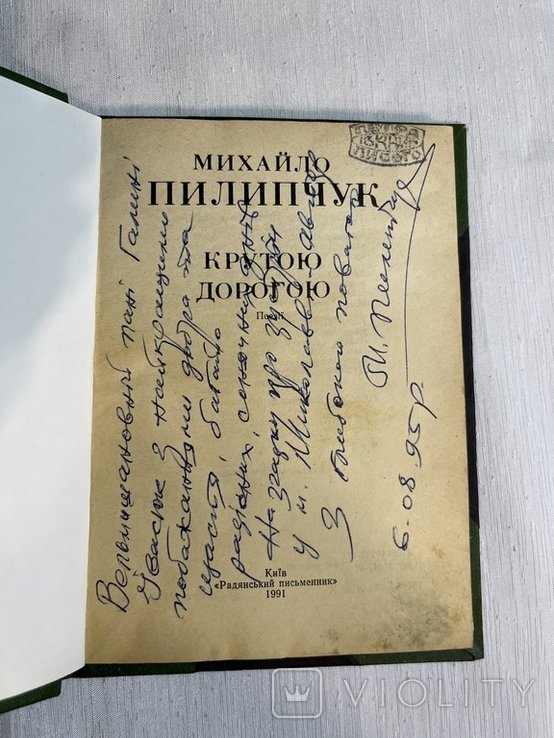 МИХАЙЛО
ПИЛИПЧУК
КРУТОЮ
ДОРОГОЮ
Київ
«Радянський письменник»
1991
Вельмишановній пані Галині
з найкращими
побажаннями добра та
щастя, багато
радісних, сонячних днів
На згадку про зустріч
у м. Миколаєві
З глибокою повагою
М. Пилипчук
6.08.95р.
VIOLITY